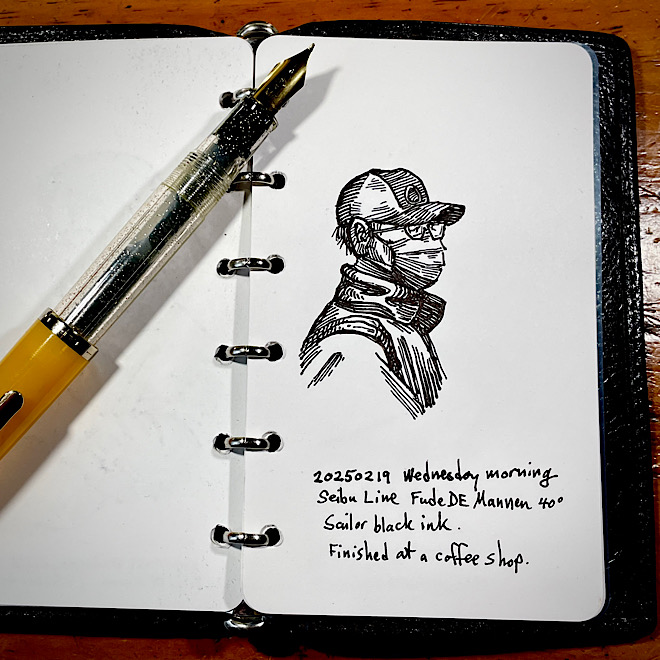 20250219 Wednesday morning
Seibu Line Fude DE Mannen 40°
Sailor black ink.
Finished at a coffee shop.